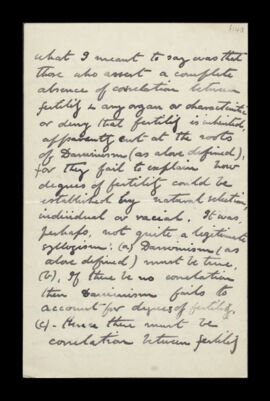 what I meant to say was that
those who assert a complete
absence of correlation between
fertility & any organ or characteristic
or deny that fertility is inherited,
apparently cut at the roots
of Darwinism (as above defined),
for they fail to explain how
degrees of fertility could be
established by natural selection,
individual or racial. It was,
perhaps, not quite a legitimate
syllogism: (a) Darwinism (as
above defined) must be true.
(b). If there be no correlation
then Darwinism fails to
account for degrees of fertility.
(c) - Hence there must be
correlation between fertility